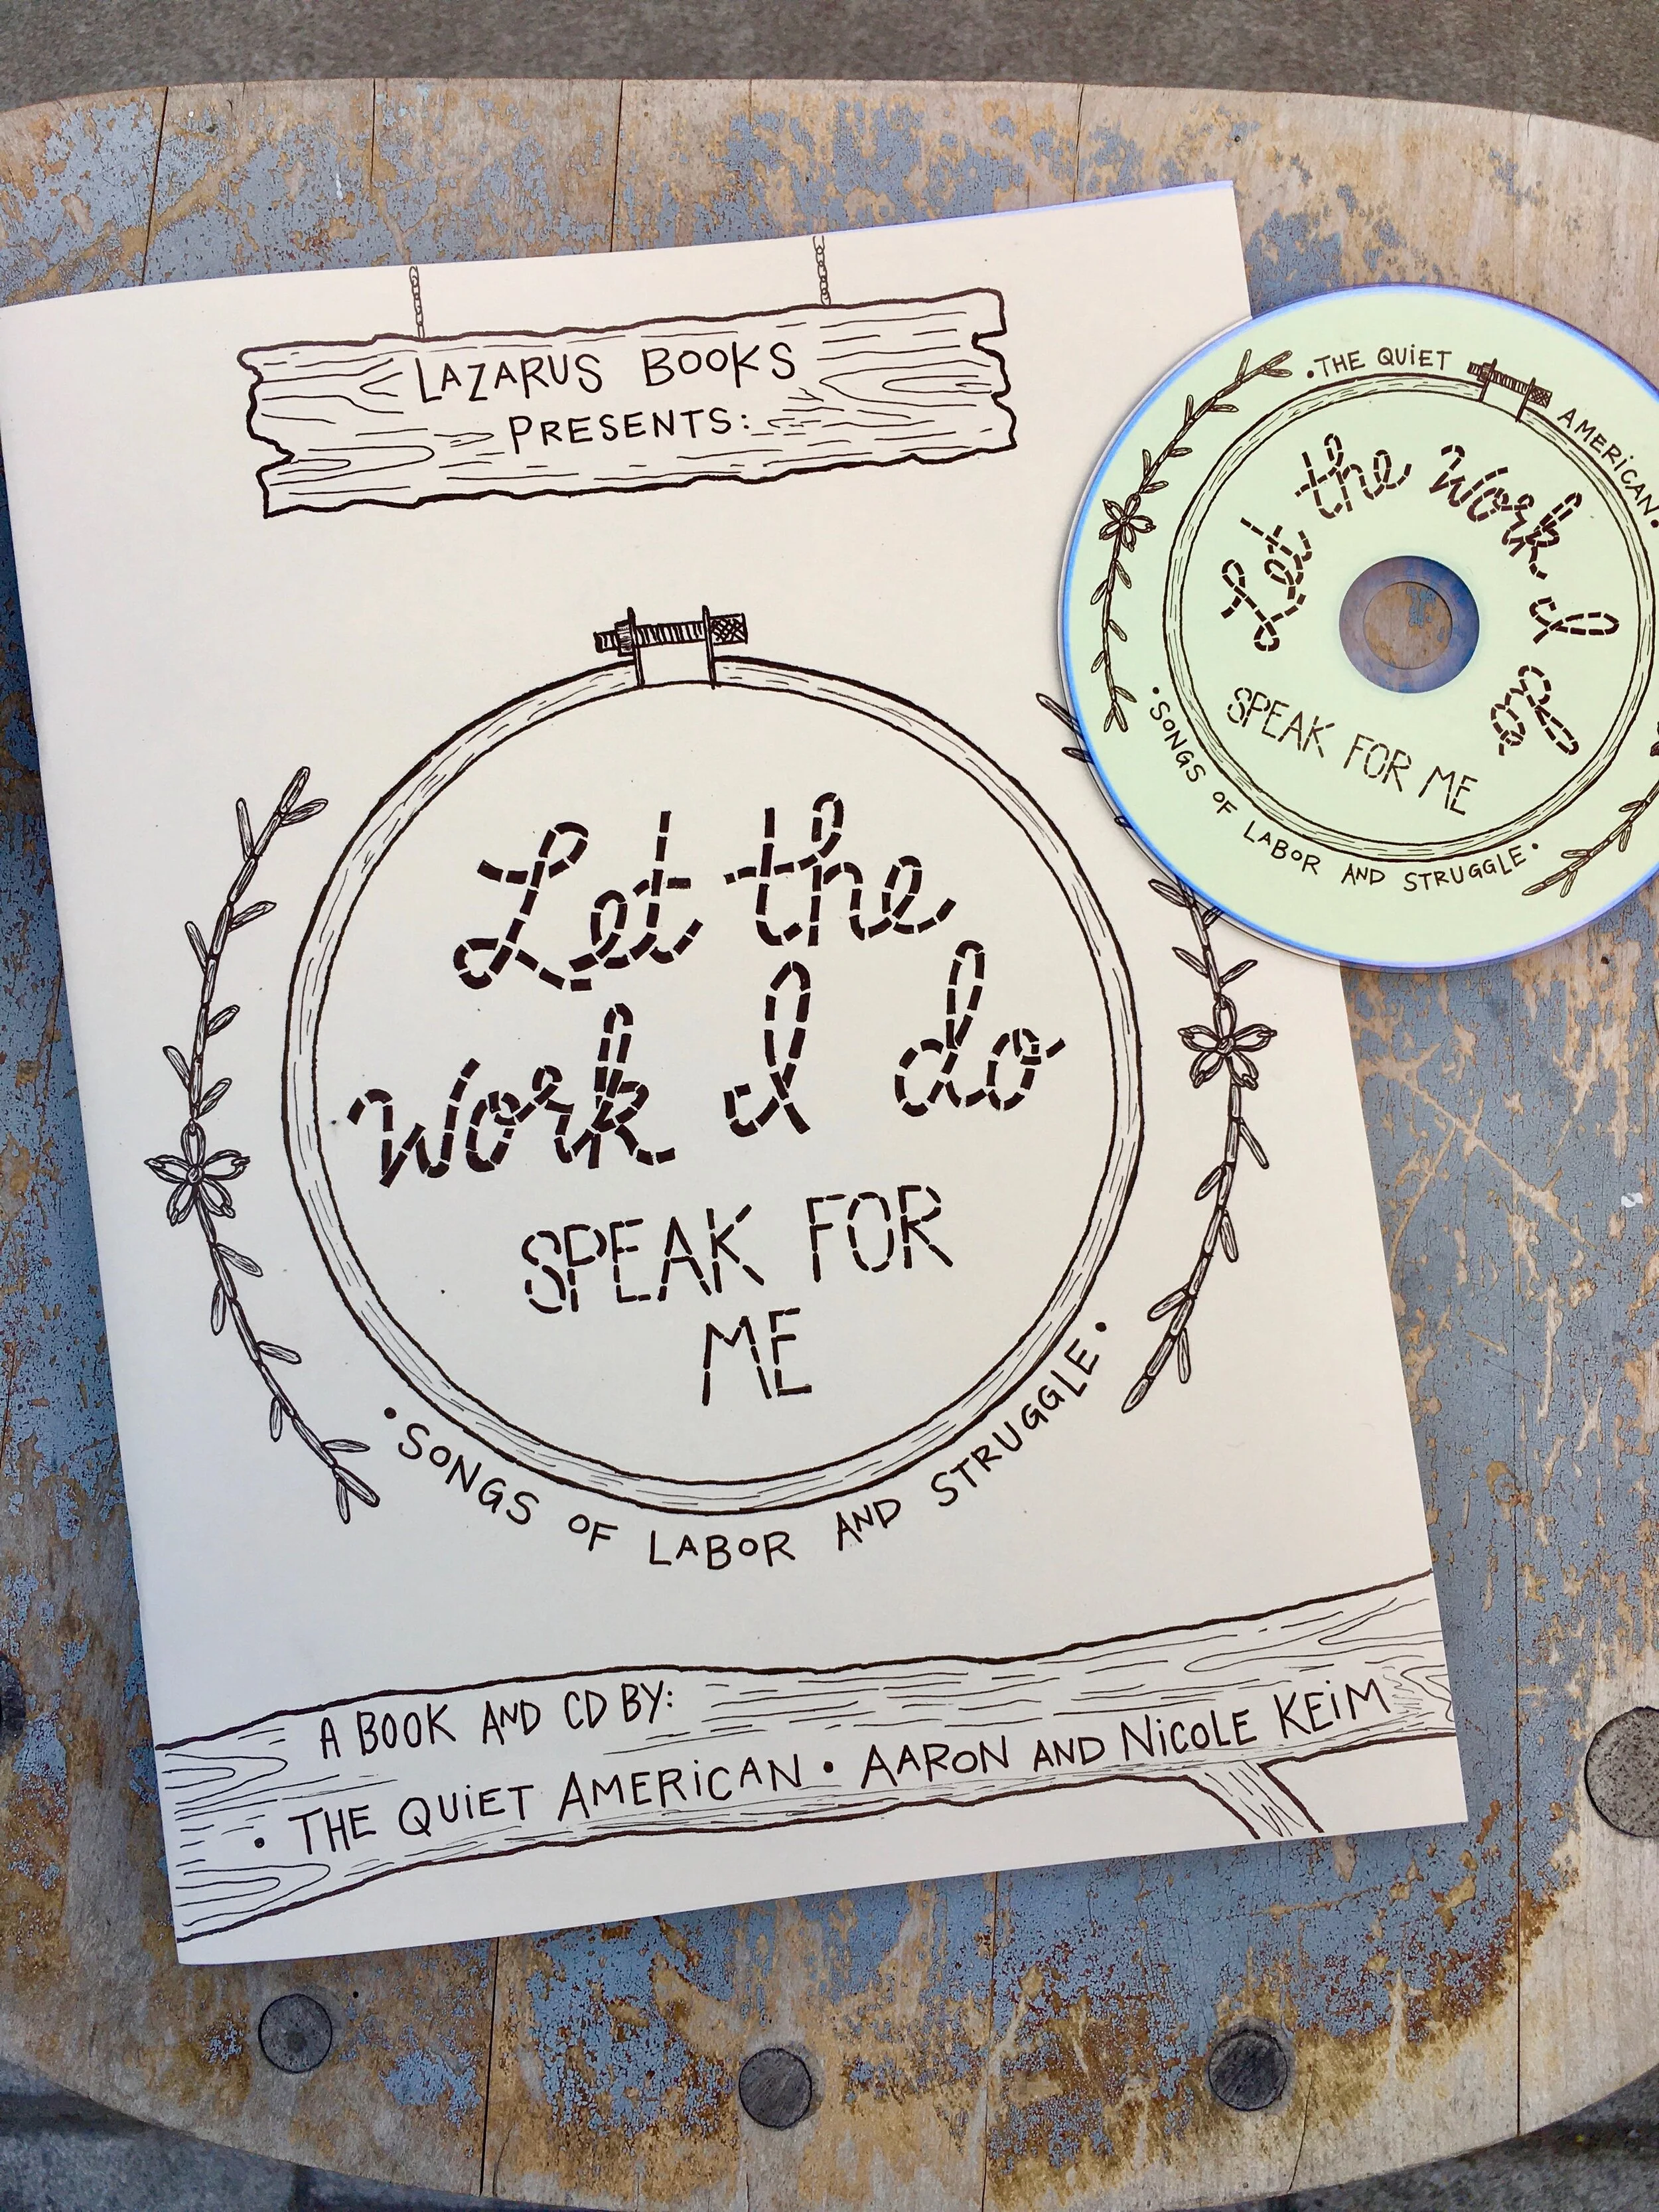 LAZARUS BOOKS
PRESENTS:
Let the
Work I do
SPEAK FOR
ME
• SONGS OF LABOR AND STRUGGLE •
A BOOK AND CD BY:
• THE QUIET AMERICAN • AARON AND NICOLE KEIM
• THE QUIET AMERICAN •
Let the Work I do
SPEAK FOR ME
• SONGS OF LABOR AND STRUGGLE •